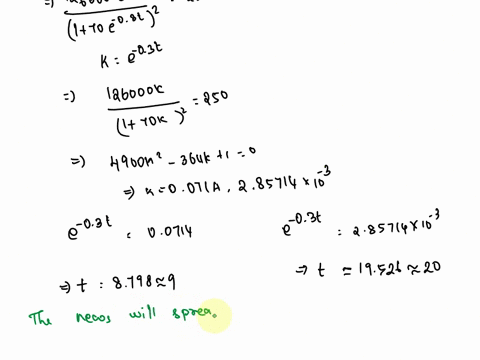 (1+70e^-0.3t)²
K = e^-0.3t
=) 126000k / (1+70k)² = 250
=) 4900k² - 364k + 1 = 0
=> k = 0.0714, 2.85714 × 10^-3
e^-0.3t = 0.0714 e^-0.3t = 2.85714×10^-3
=> t = 8.798 ≈ 9 => t ≃ 19.526 ≈ 20
The news will sprea